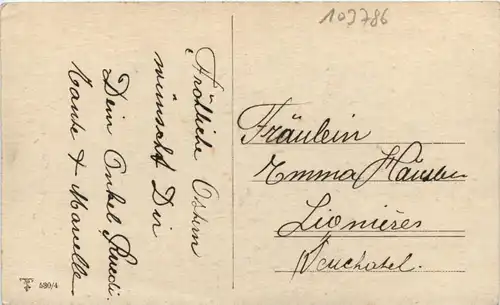 103786
Fröhliche Ostern
wünscht Dir
Dein Onkel Ruedi
Tante & Marcelle
Fräulein
Emma
Lionières
Neuchatel.
580/4